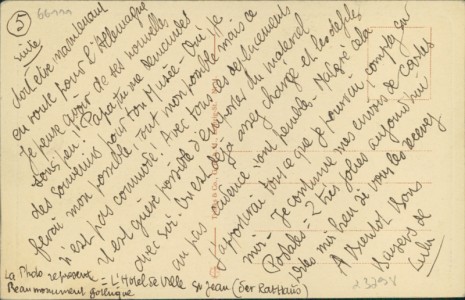 5
66111
suite
doit être maintenant
en route pour l'Allemagne
Je peux avoir de tes nouvelles
sous peu! Papa tu me demandes
des souvenirs pour ton Musée - Oui je
ferai mon possible, tout mon possible mais ce
n'est pas commode! Avec tous ces déplacements
il n'est guère possible d'emporter du matériel
avec soi. On est déjà assez chargé et les défilés
au pas cadencé sont pénible. Malgré cela
j'apporterai tout ce que je pourrai compte sur
moi - Je continue mes envois de Cartes
Postales = 2 très jolies aujourd'hui
dites moi bien si vous les recevez
A Bientot Bons
Baisers de
Lulu
La Photo représente = L'Hotel de Ville St Jean (Der Rathaus)
Beau monument gothique
23298